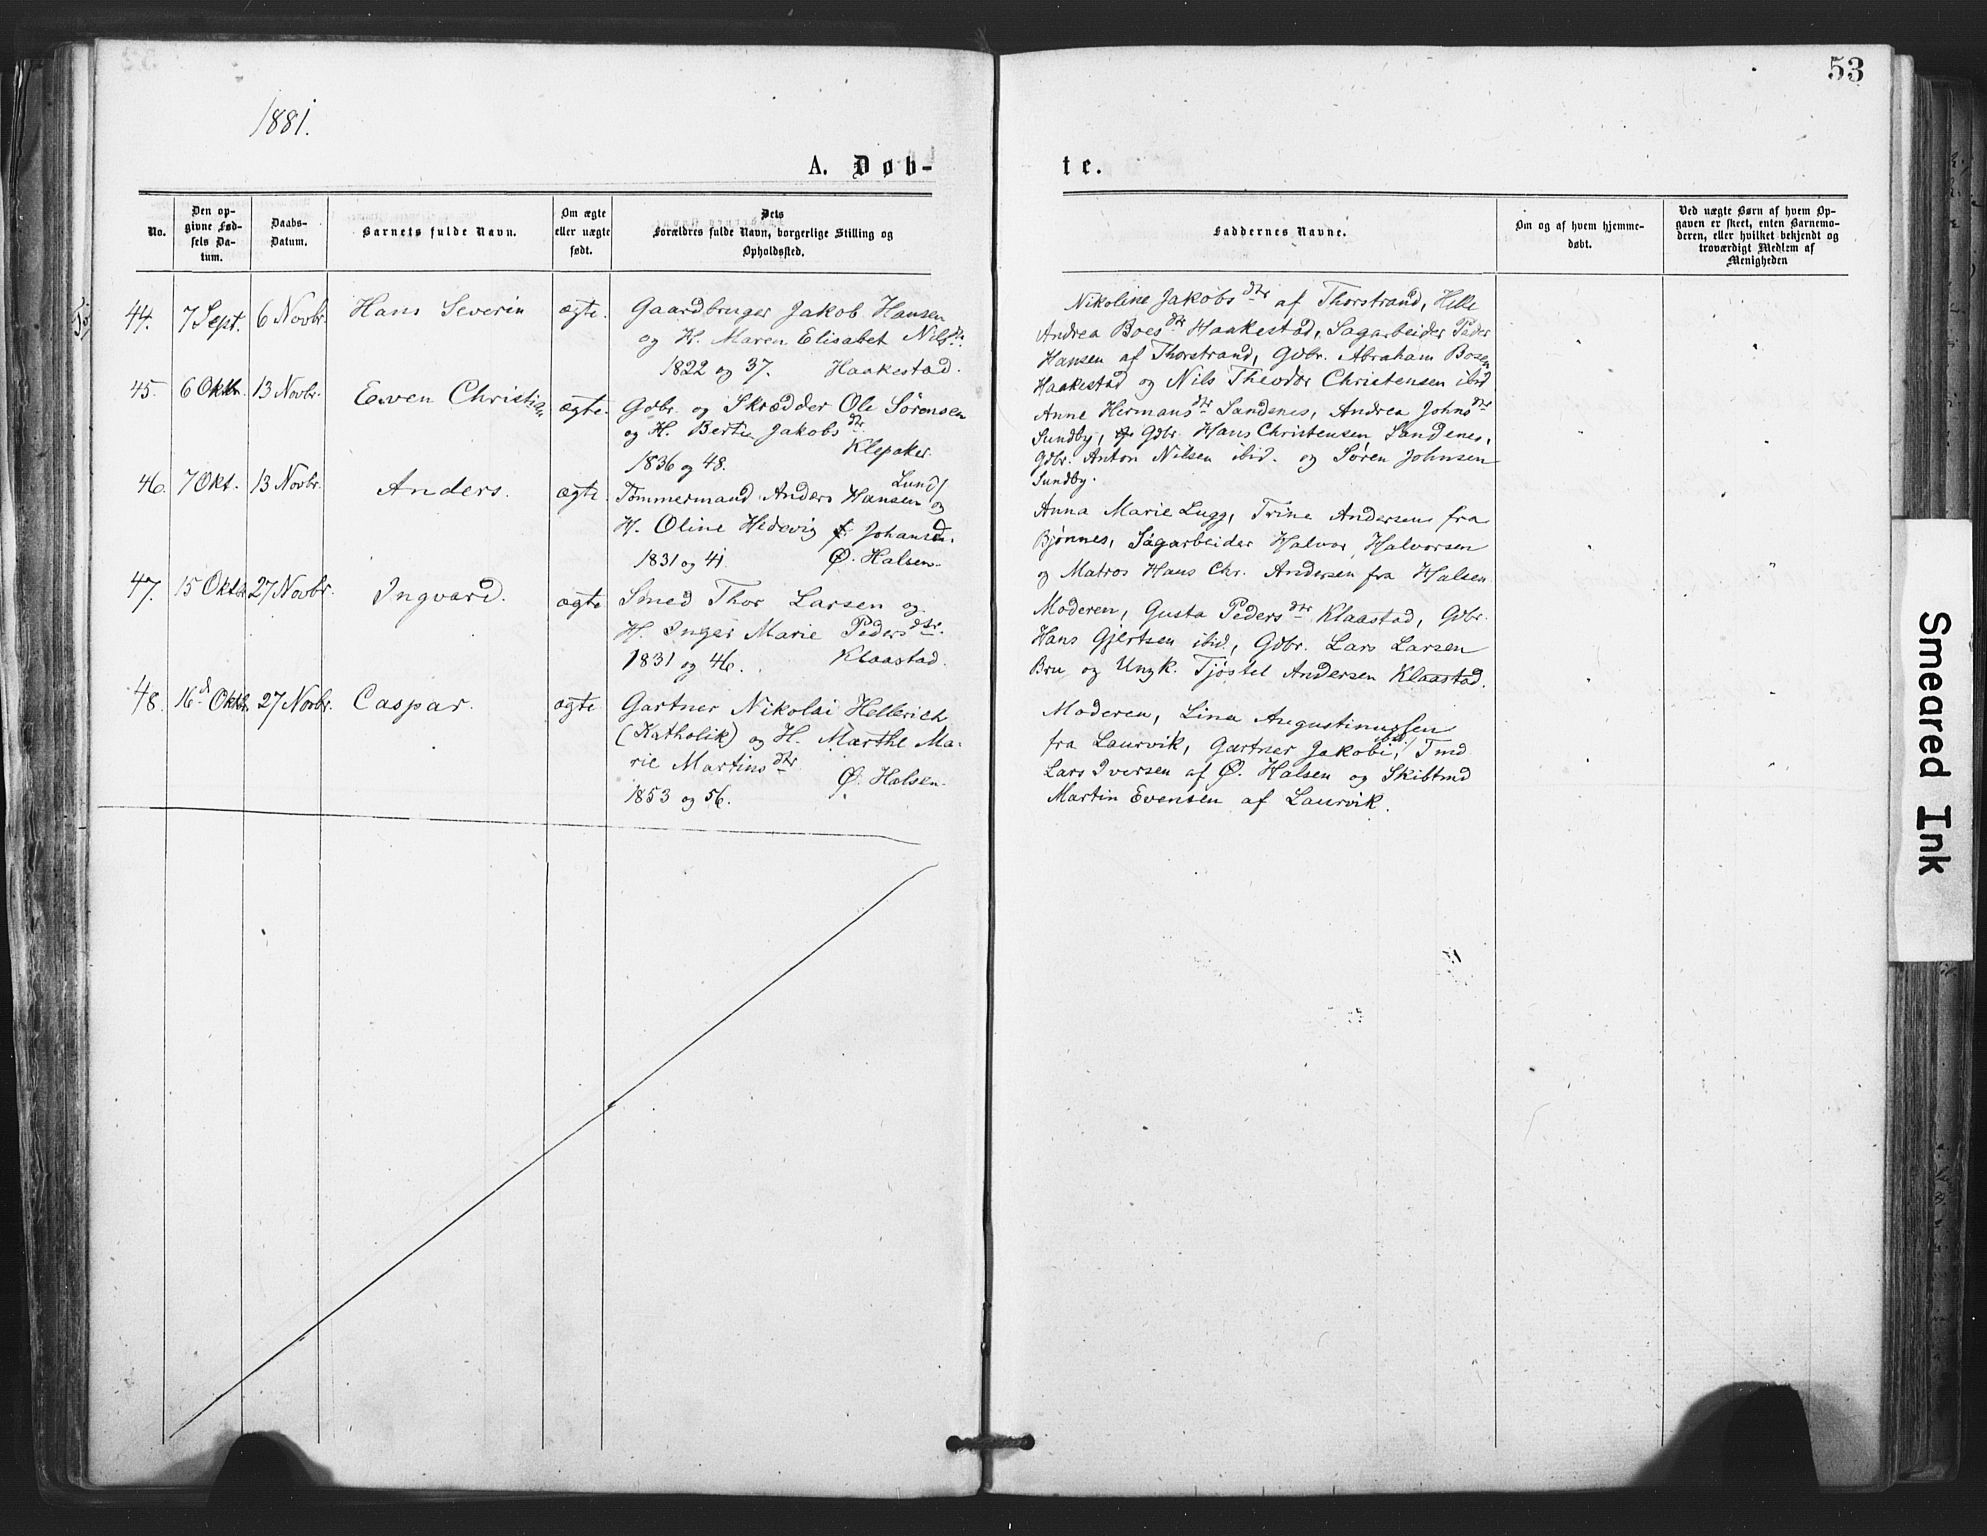 53
1881.
A. Døb-
te.
No.
Den op-
givne Fød-
sels Da-
tum.
Daabs-
Datum.
Barnets fulde Navn.
Om ægte
eller uægte
født.
Dets
Forældres fulde Navn, borgerlige Stilling og
Opholdssted.
Faddernes Navne.
Om og af hvem hjemme-
døbt.
Ved uægte Børn af hvem Op-
gaven er skeet, enten Barnemo-
deren, eller hvilket bekjendt og
troværdigt Medlem af
Menigheden
44. 7 Sept. 6 Novbr. Hans Severin ægte.
Gaardbruger Jakob Hansen
og H. Maren Elisabet Nilsdtr.
1822 og 37. Haakestad.
Nikoline Jakobsdtr af Thorstrand, Helle
Andrea Boesdtr Haakestad, Sagarbeider Peder
Hansen af Thorstrand, Gdbr. Abraham Bosen
Haakestad og Nils Theodor Christensen ibid
45. 6 Oktbr. 13 Novbr. Even Christian ægte.
Gdbr. og Skrædder Ole Sørensen
og H. Berte Jakobsdtr
Klepaker.
1836 og 48.
Anne Hermansdtr Sandenes, Andrea Johnsdtr
Sundby, Gdbr. Hans Christensen Sandenes,
Gdbr. Anton Nilsen ibid. og Søren Johnsen
Sundby.
46. 7 Okt. 13 Novbr. Anders. ægte.
Lund/
Tømmermand Anders Hansen og
H. Oline Hedevig f. Johansen.
1831 og 41. Ø. Halsen.
Anna Marie Lugg, Trine Andersens fra
Bjønnes, Sagarbeider Halvor Halvorsen
og Matros Hans Chr. Andersen fra Halsen
47. 15 Oktbr. 27 Novbr. Ingvard. ægte
Smed Thor Larsen og
H. Inger Marie Pedersdtr.
1831 og 46. Klaastad.
Moderen, Gusta Pedersdtr Klaastad, Gdbr.
Hans Gjertsen ibid., Gdbr. Lars Larsen
Bru og Ungk. Tjøstel Andersen Klaastad.
48. 16de Oktbr. 27 Novbr. Caspar. ægte
Gartner Nikolai Hellerich
(Katholik) og H. Marthe Ma-
rie Martinsdtr
Ø. Halsen.
1853 og 56.
Moderen, Lina Augustinussen
fra Laurvik, Gartner Jakobi, ibid., Tmd
Lars Iversen af Ø. Halsen og Skibtmd
Martin Evensen af Laurvik.
Smeared Ink